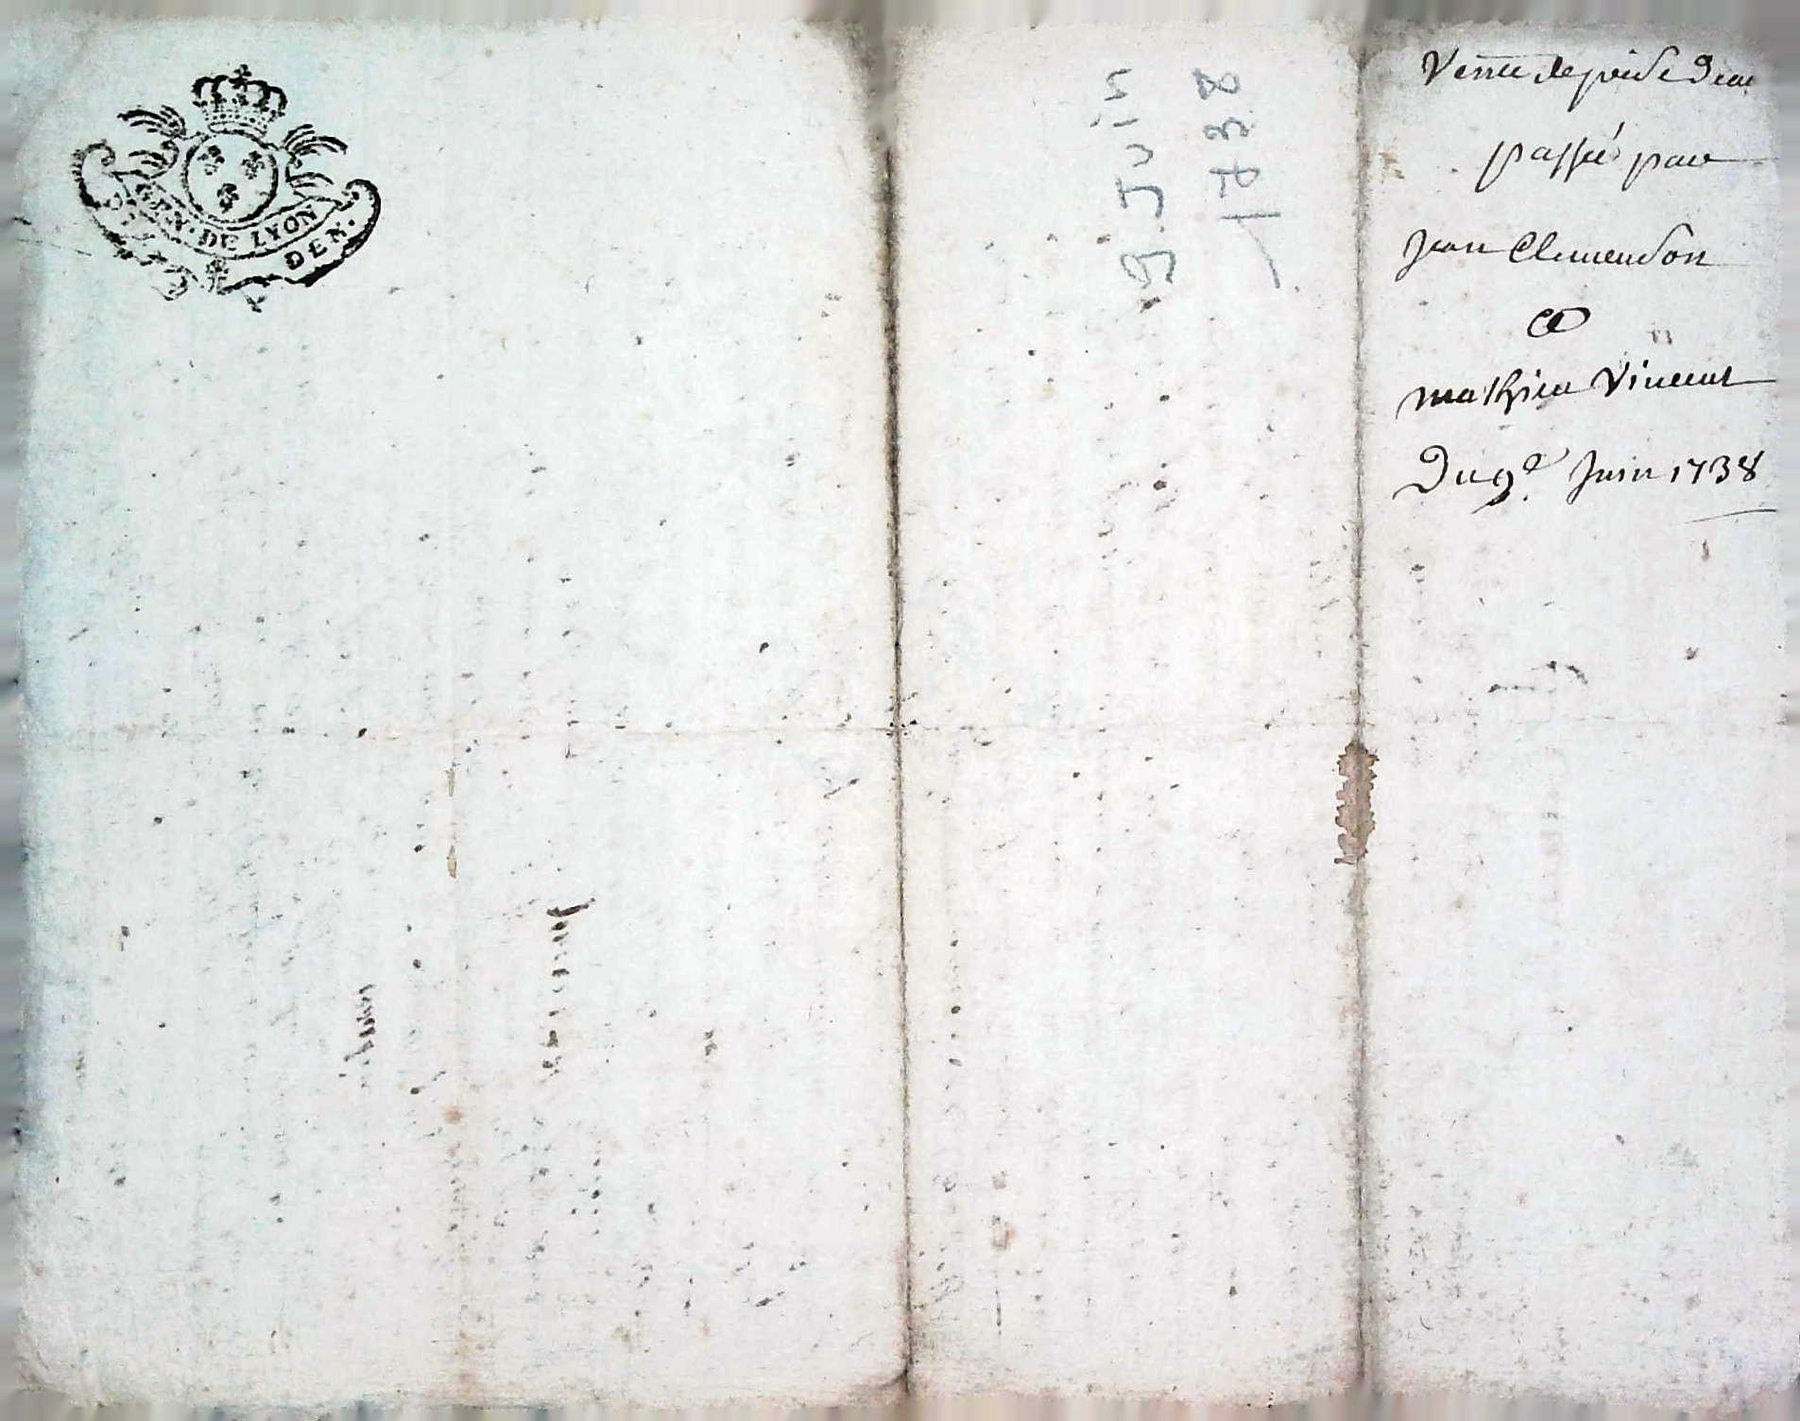 GEN. DE LYON
DEN.
9. Juin
1738
Vente de prise d'eau
passée par
Jean Clemenson
a
mathieu Vincent
Du 9e. Juin 1738